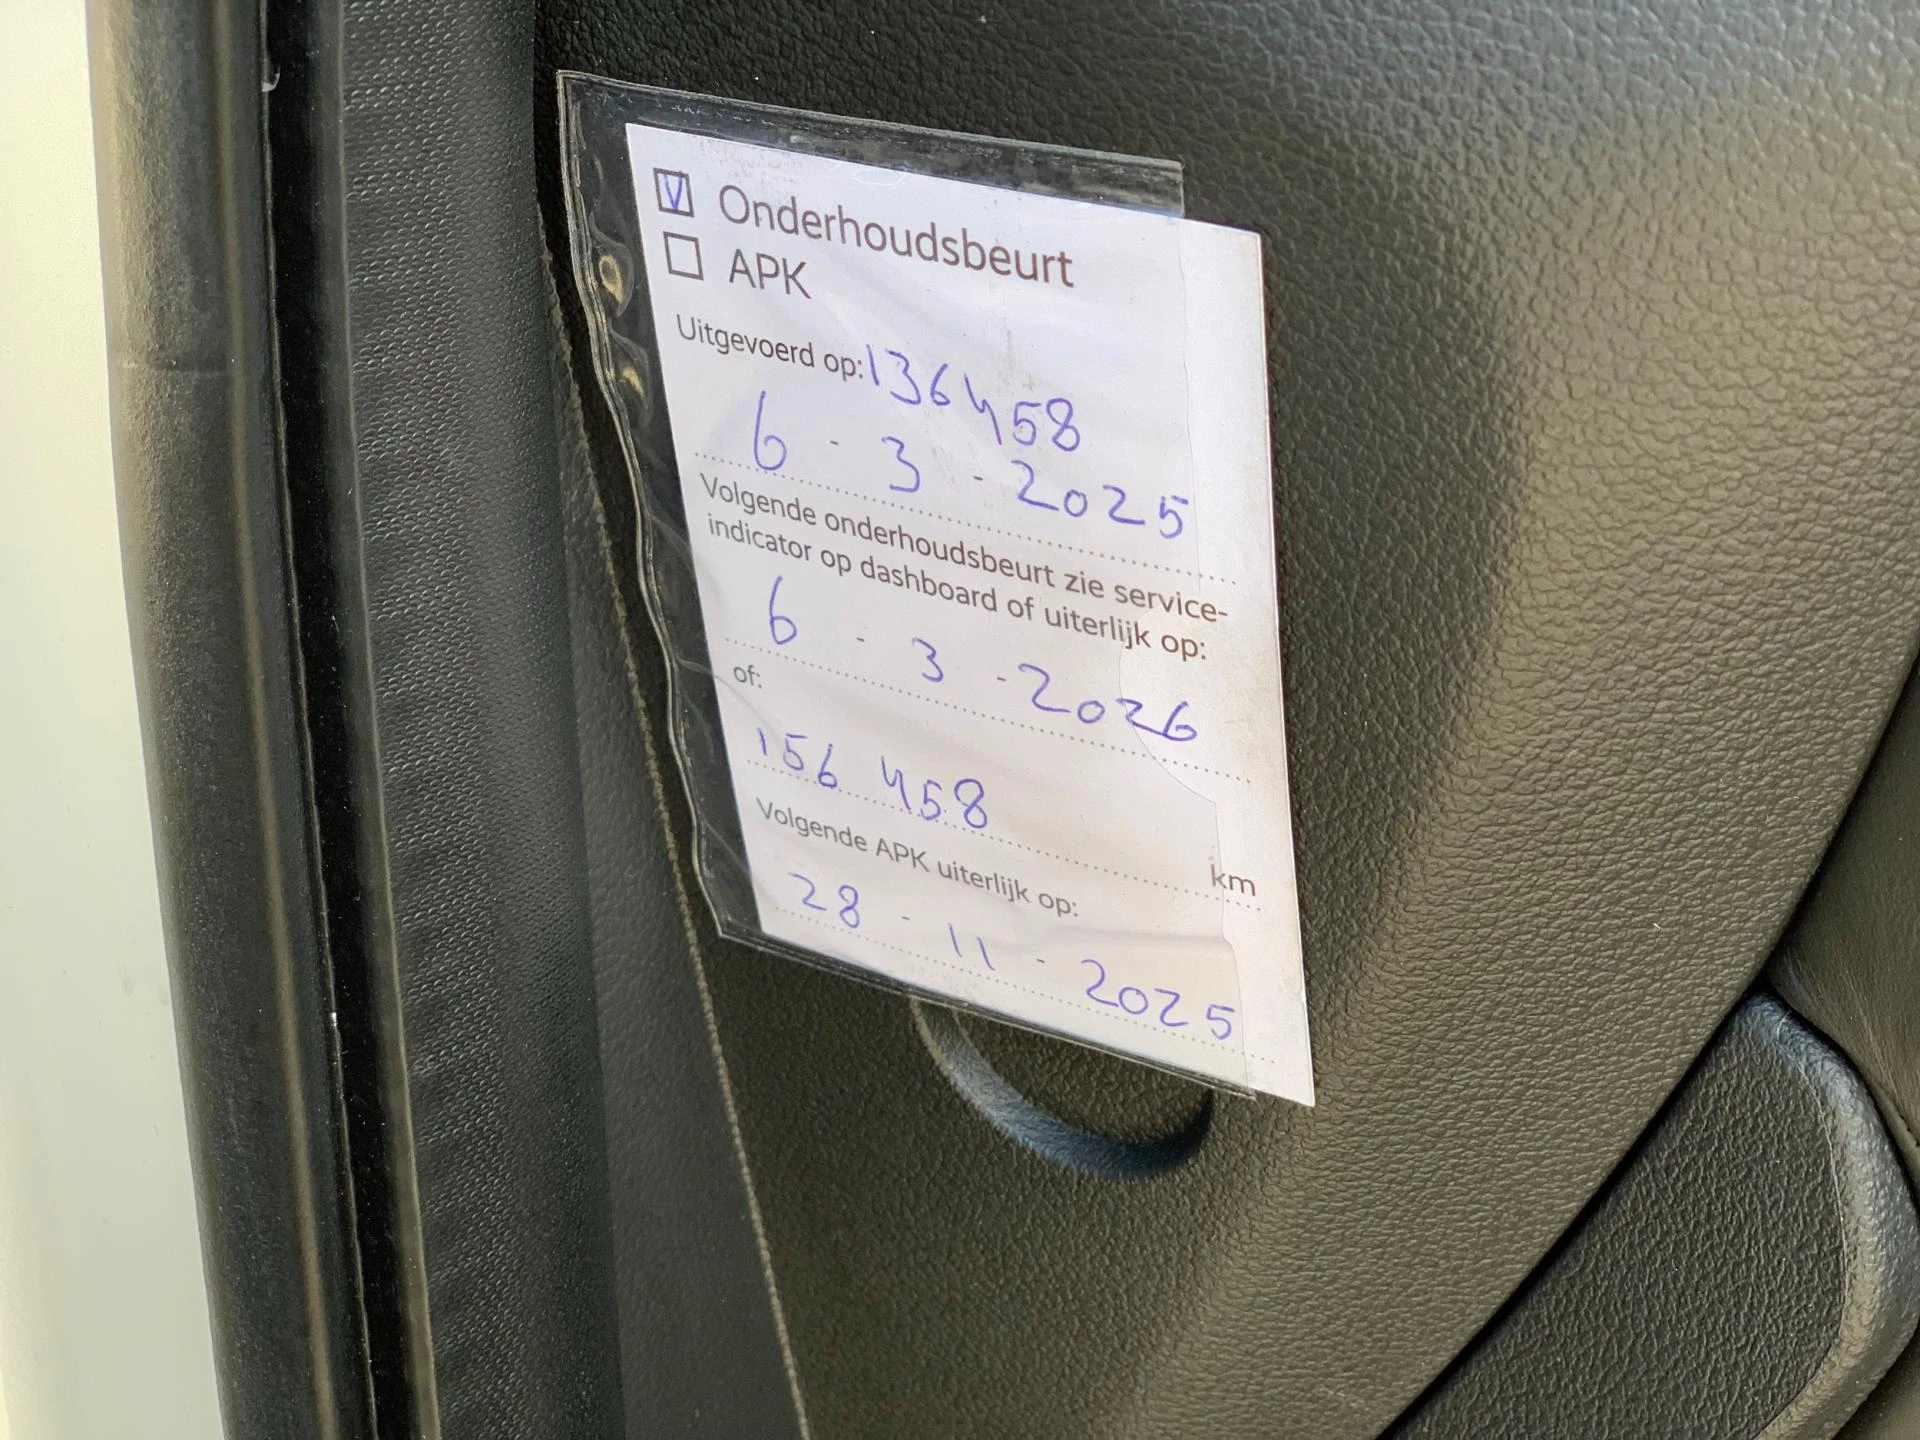 V Onderhoudsbeurt
APK
Uitgevoerd op: 136458
6 - 3 - 2025
Volgende onderhoudsbeurt zie service-
indicator op dashboard of uiterlijk op:
6 - 3 - 2026
of:
156 458
km
Volgende APK uiterlijk op:
28 - 11 - 2025